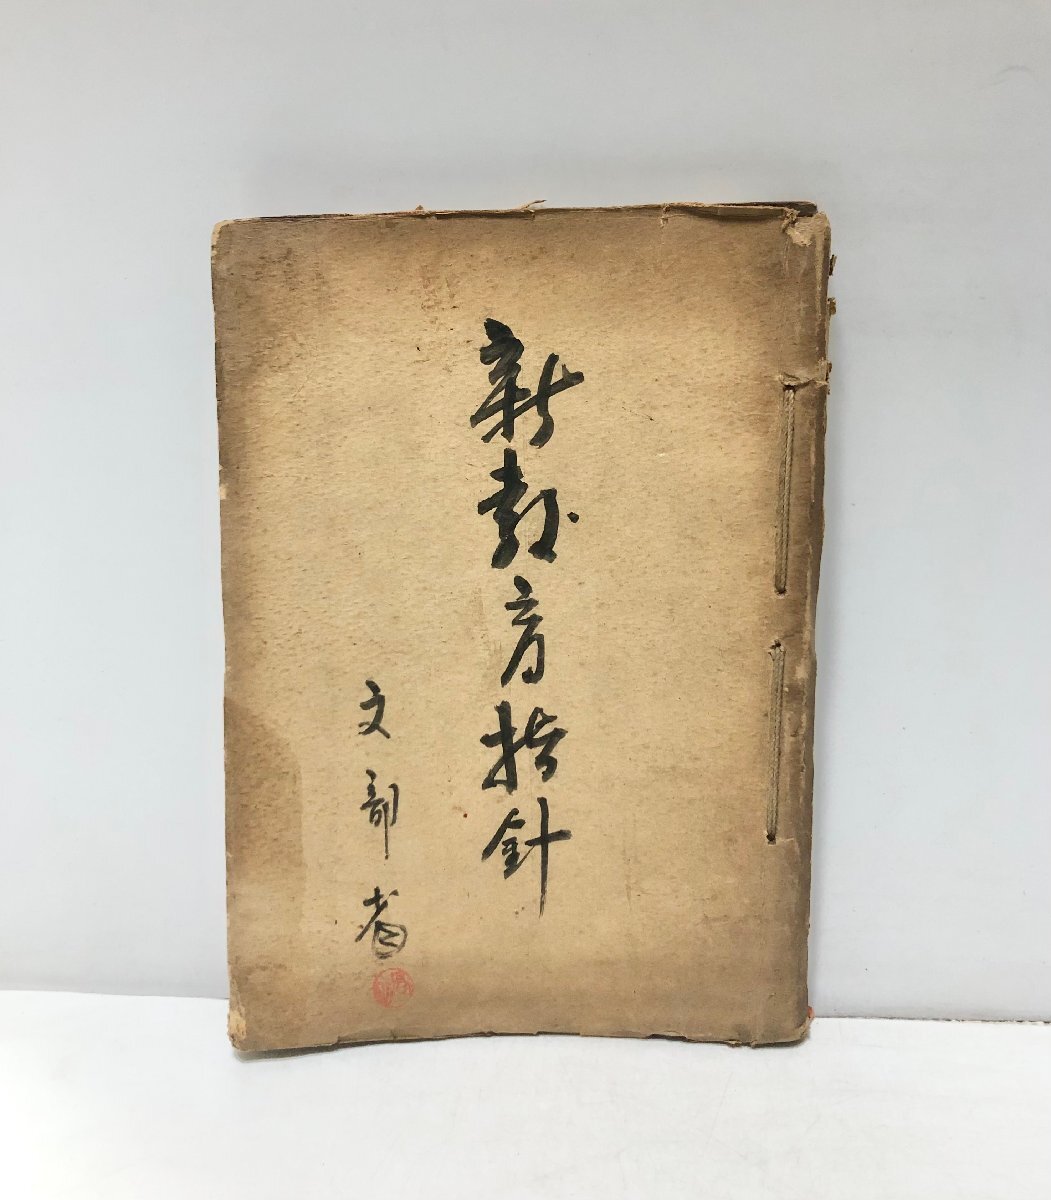 新教育指針
文部省